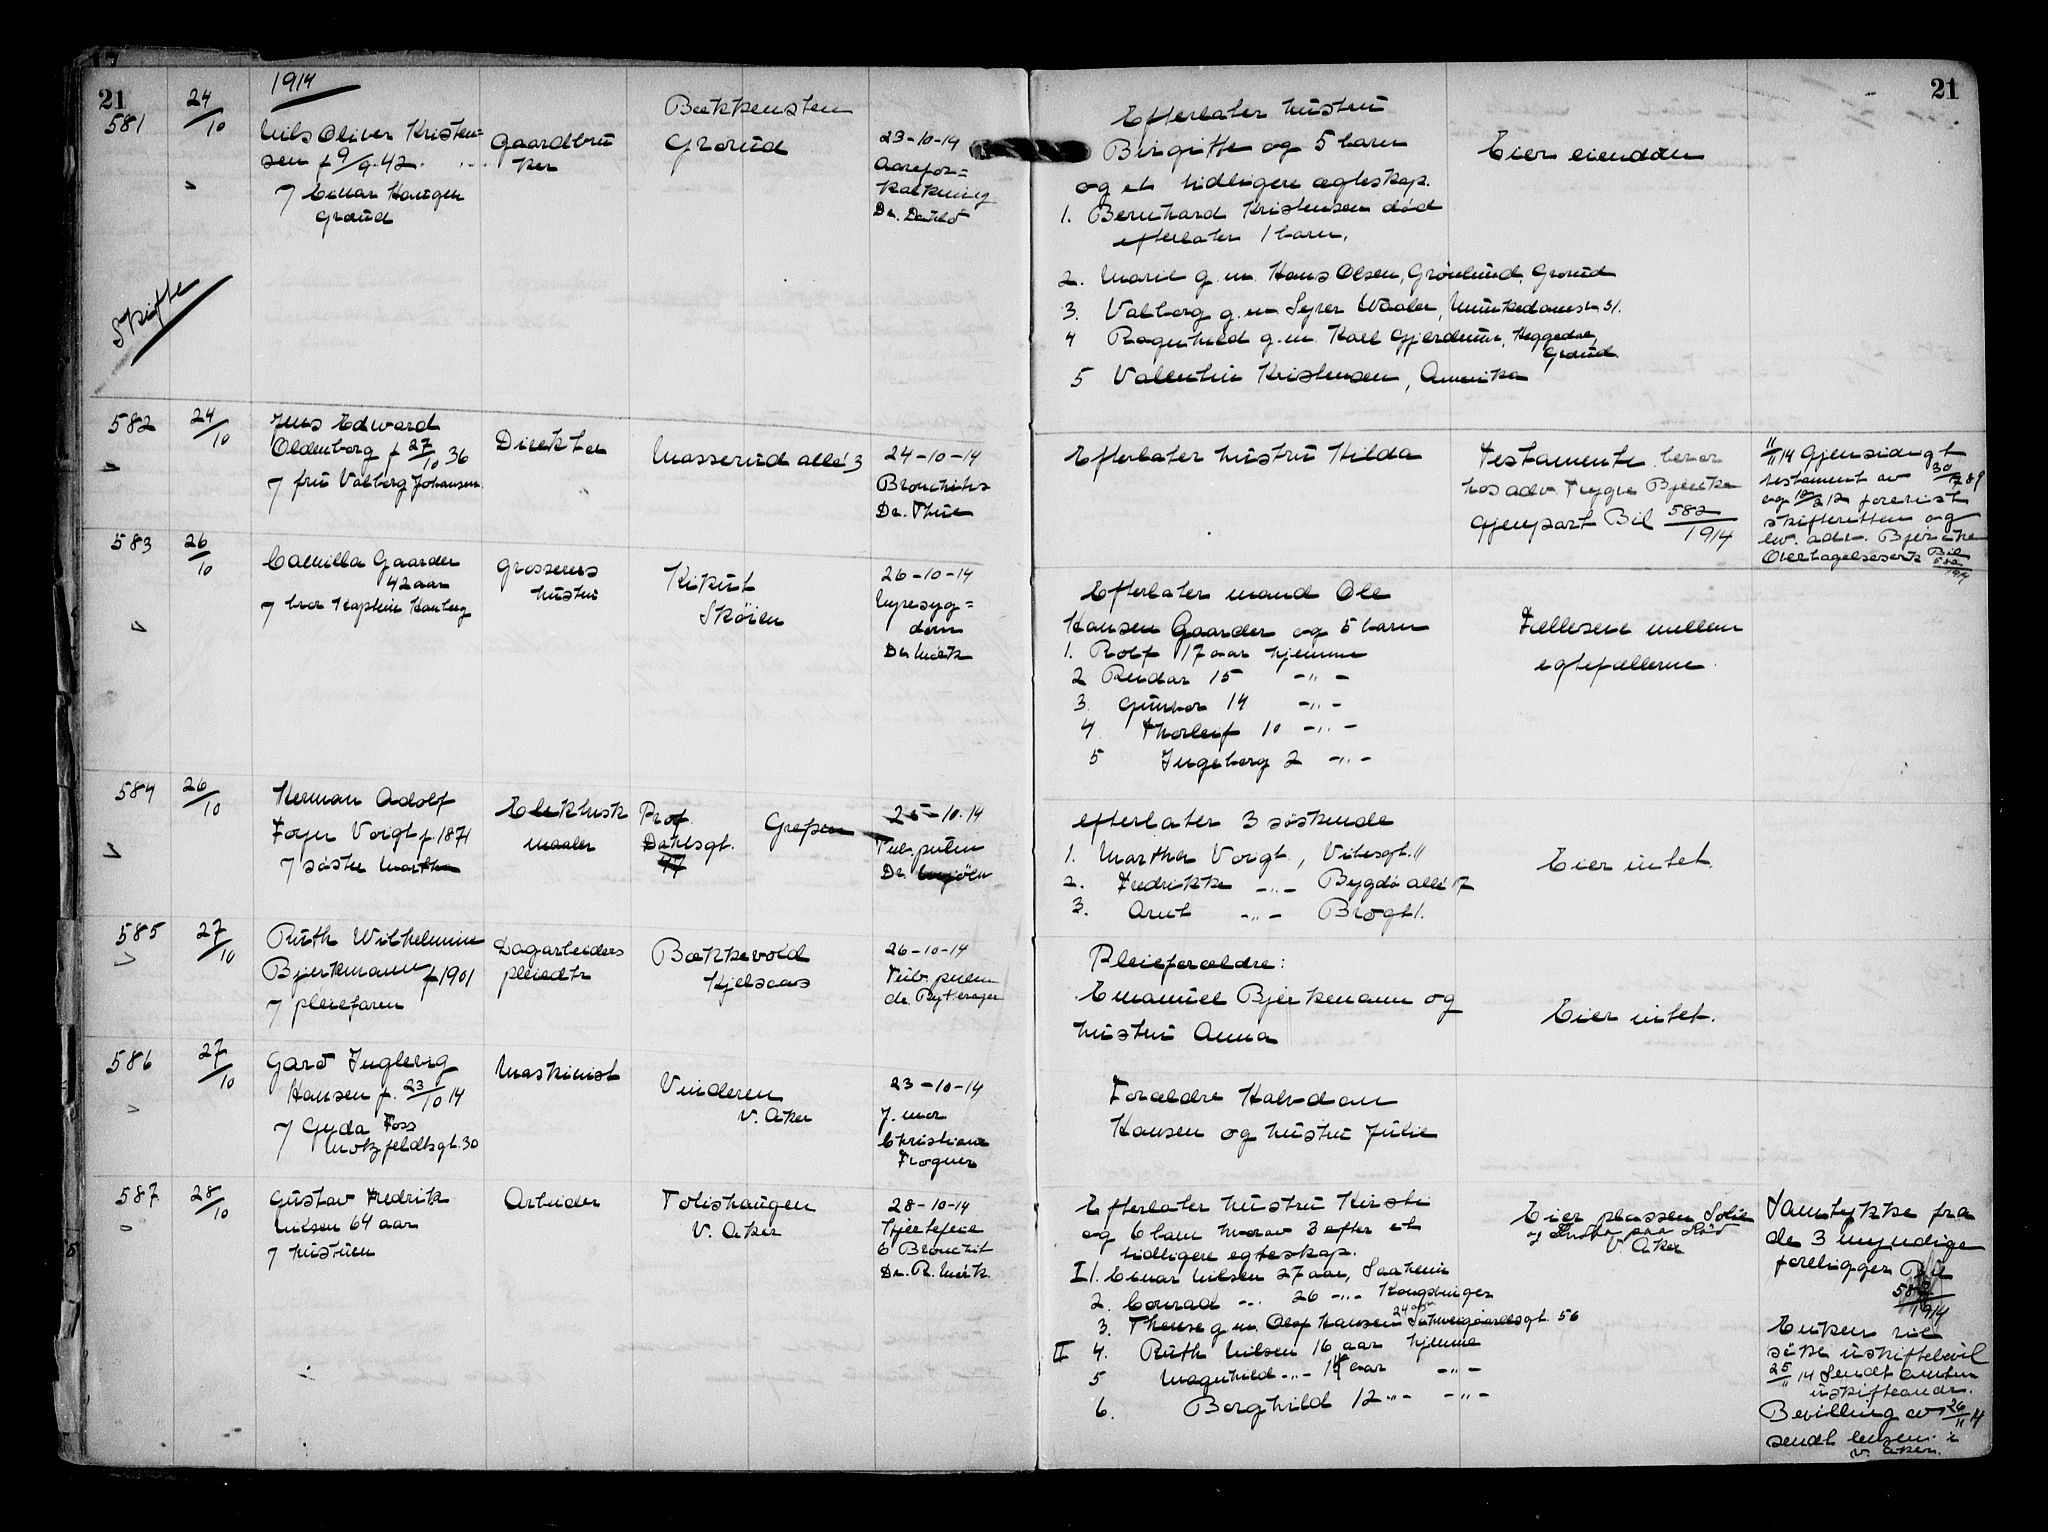 21
21
1914
581
24/10
Nils Oliver Kristen=
sen f 9/9.42.
7 Einar Haugen
Grorud
Gaardbru
ker
Bækkensten
Grorud
23-10-14
Aarefor=
kalkning
Dr. Dahlö
Efterlater hustru
Birgitte og 5 barn
og et tidligere ægteskap.
1. Bernhard Kristensen död
efterlater 1 barn.
2. Marie g.m. Hans Olsen, Grönlund, Grorud
3. Valborg g.m. Syver Waaler, Munkedamsv 51.
4 Ragnhild g.m. Karl Gjerdrum, Heggedal,
Grorud.
5 Valentin Kristensen, Amerika
Eier eiendom
Skifte
582
24/10
Jens Edward
Oldenborg f 27/10 36
7 fru Valborg Johansen
Direktør
Masserud allé 3
24-10-14
Bronchitis
Dr. Thue
Efterlater hustru Hilda
Testamente beror
hos adv. Trygve Bjerke
Gjenpart Bil 582/1914
11/11 14 Gjensidigt
testament av 30/12 89
og 12/2 12 forevist
skifteretten og
lev. adv. Bjerke
Overtagelseserk Bil
582/1914
583
26/10
Camilla Gaarder
42 aar
7 bror Kaptein Hauberg
Grosserers
hustru
Kikut
Skøien
26-10-14
Nyresyg=
dom
Dr. Mørk
Efterlater mand Ole
Hansen Gaarder og 5 barn
1. Rolf 17 aar hjemme
2 Reidar 15 -"-
3. Gunvor 14 -"-
4. Thorleif 10 -"-
5 Ingeborg 2 -"-
Fælleseie mellem
egtefællerne.
584
26/10
Herman Adolf
Foyn Voigt f. 1871
7 søster Martha
Elektrisk
maaler
Prof
Dahlsgt.
47
Grefsen
25-10-14
Tub. pulm
Dr.
efterlater 3 søskende
1. Martha Voigt, Vibesgt. 11
2. Fredrikke -"- Bygdø allé 17
3. Arnt -"- Brogt 1.
Eier intet.
585
27/10
Ruth Wilhelmine
Bjerkmann f 1901
7 pleiefaren
Dagarbeiders
pleiedtr
Bækkevold
Kjelsaas
26-10-14
Tub. pulm
dr. Rytterager
Pleieforældre:
Emanuel Bjerkmann og
hustru Anna
Eier intet.
586
27/10
Gard Ingleiv
Hansen f. 23/10 14
7 Gyda Foss
Motzfeldtsgt. 30
Maskinist
Vinderen
V. Aker
23-10-14
J. mor
Christiane
Frogner
Forældre Halvdan
Hansen og hustru Julie
587
28/10
Gustav Fredrik
Nilsen 64 aar
7 hustruen
Arbeider
Tolishaugen
V. Aker
28-10-14
Hjertefeil
& Bronchit
Dr. R. Mørk.
Efterlater hustru Kirsti
og 6 barn hvorav 3 efter et
tidligere egteskap.
I 1. Einar Nilsen 27 aar,
2. Conrad -"- 26 -"- Kongsvinger
3. Therese g.m. Olaf Hansen 24 aar Schweigaardsgt. 56
II 4. Ruth Nilsen 16 aar hjemme
5 Magnhild -"- 14 aar -"-
6. Borghild 12 -"- -"-
Eier plassen Solie
V. Aker
Samtykke fra
de 3 myndige
foreligger Bil
587/1914
Enken vil
søke uskiftebevil
25/11 14 Sendt Amten
uskifteandr.
Bevilling av 26/11 14
sendt lensm. i
V. Aker.